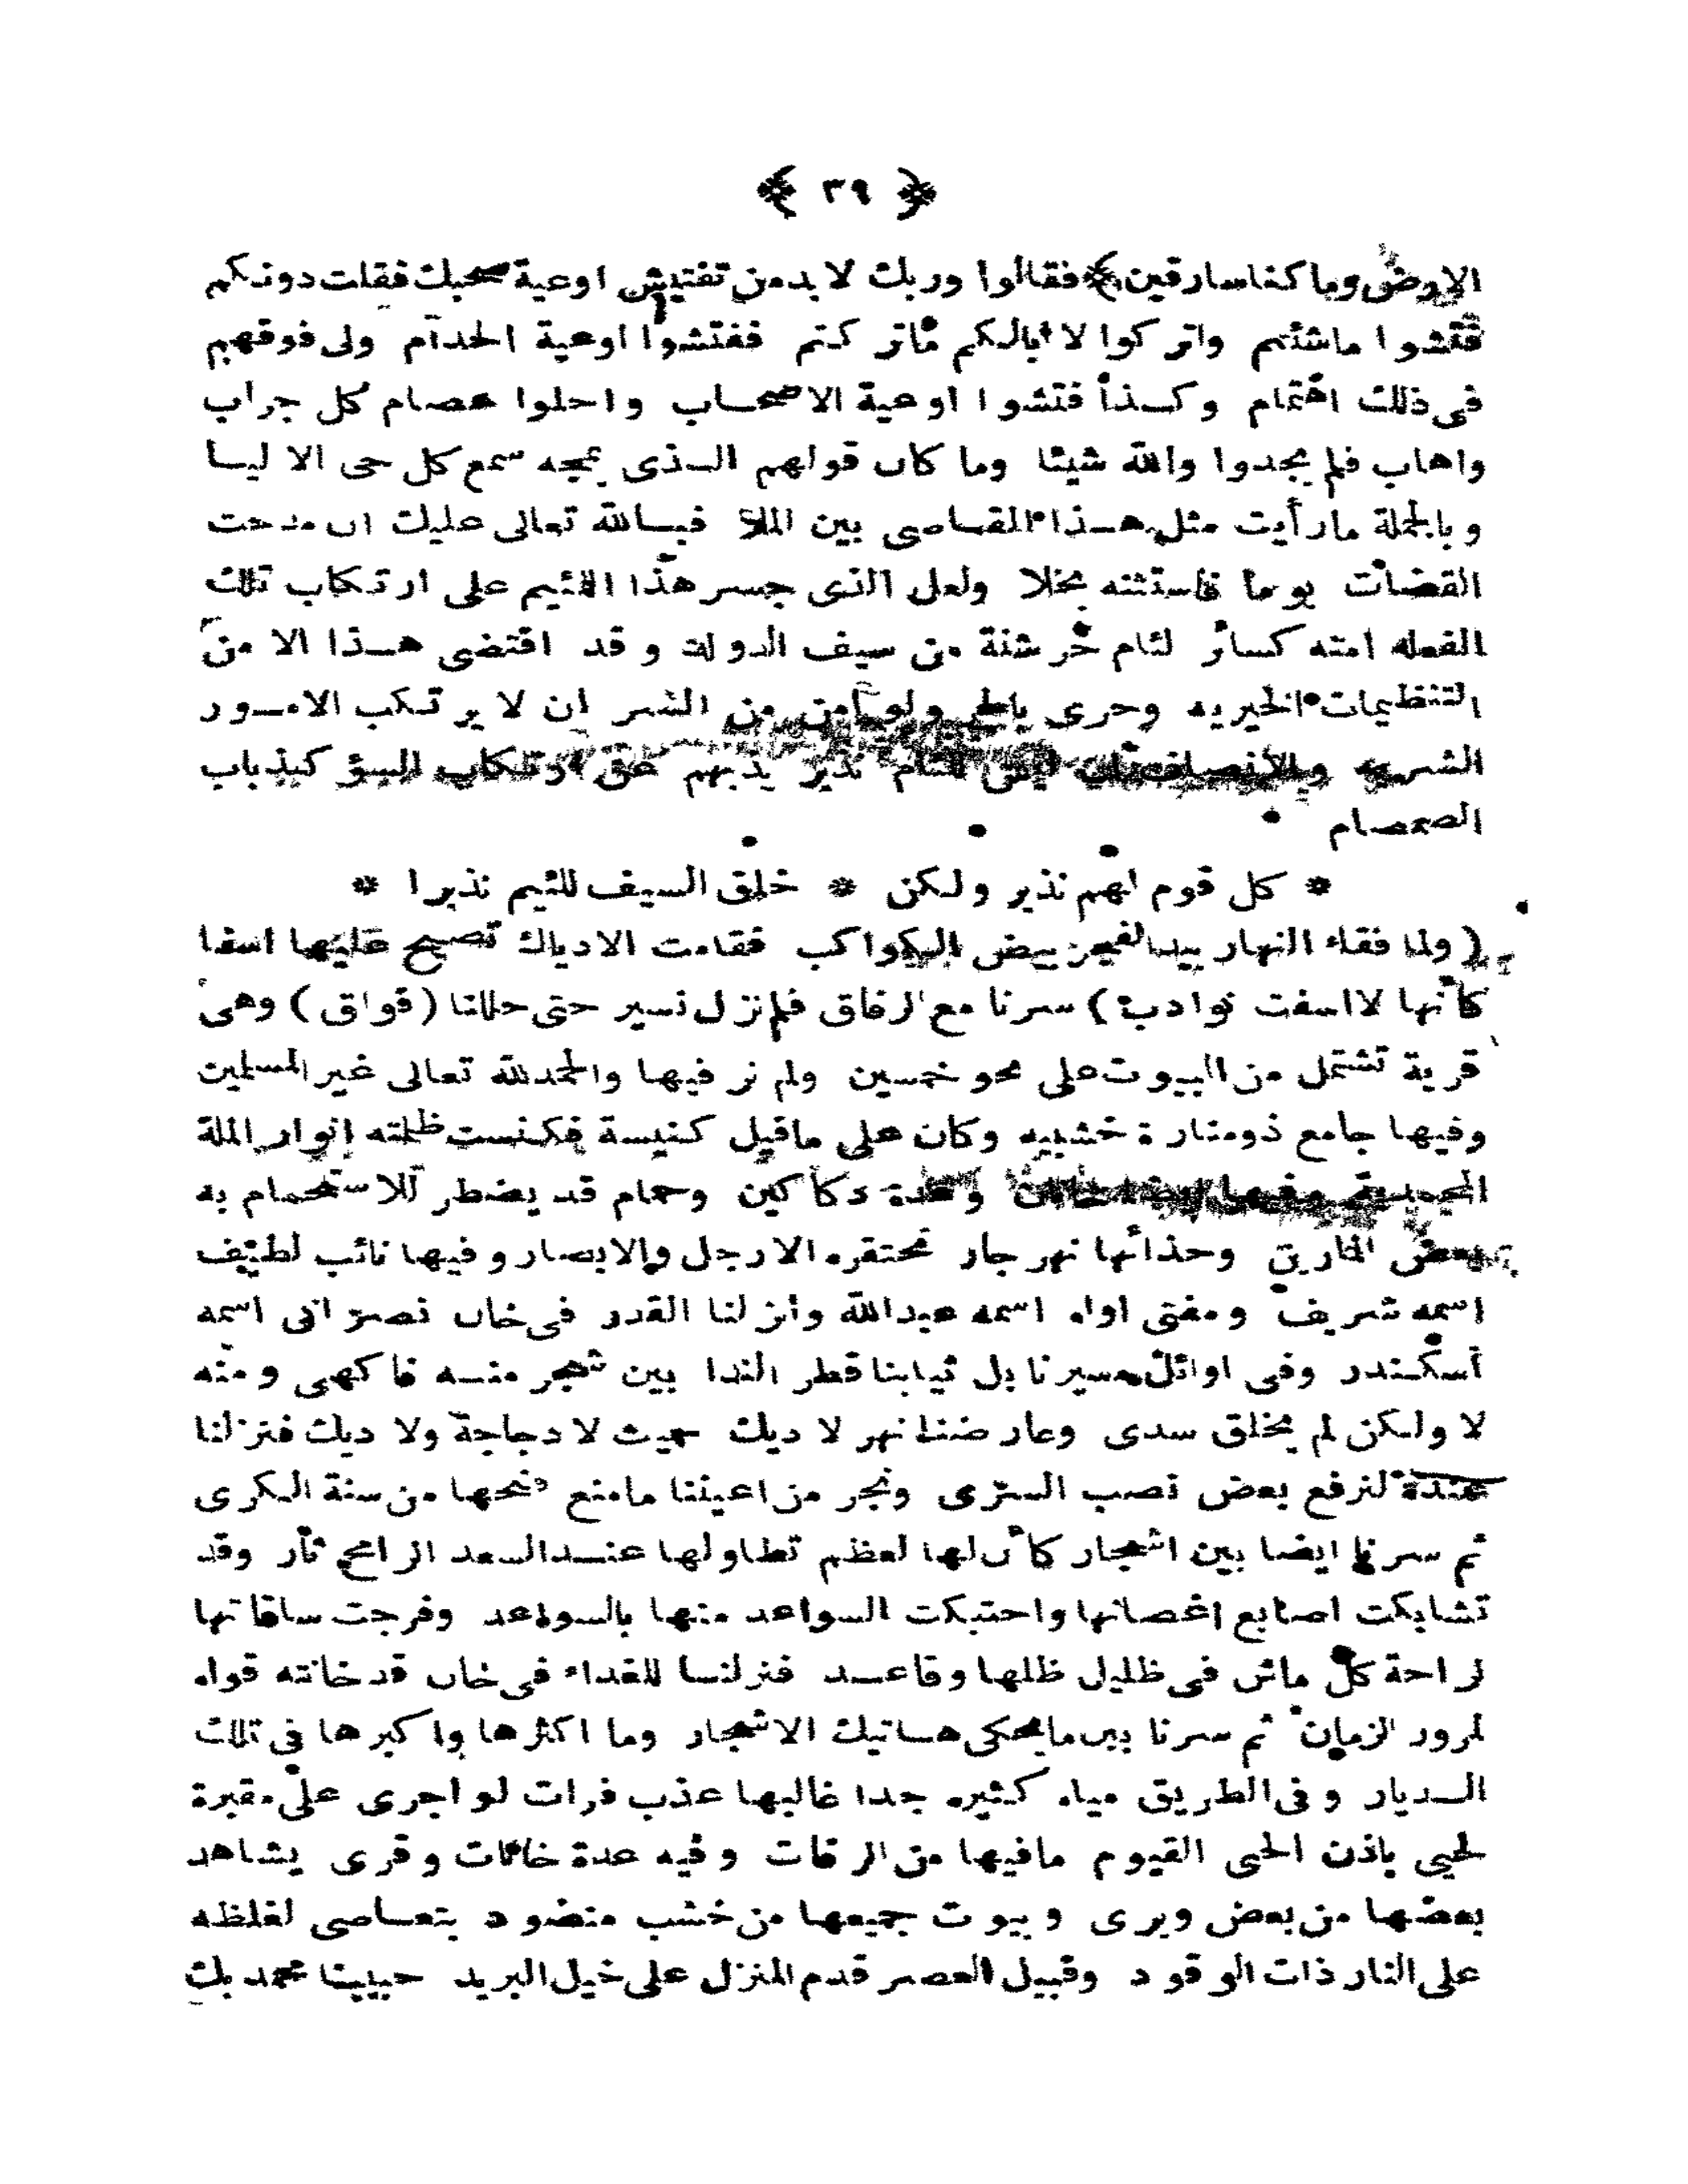 ﴿ ٣٩ ﴾
الارض وما كنا سارقين ﴾ فقالوا وربك لا بد من تفتيش اوعية صحبك فقلت دونكم
فتشوا ما شئتم واتركوا لا ابالكم ما تركتم ففتشوا اوعية الخدام ولى فوقهم
فى ذلك اهتمام وكذا فتشوا اوعية الاصحاب واحلوا عصام كل جراب
واهاب فلم يجدوا والله شيئا وما كان قولهم الذى يمجه سمع كل حى الا ليا
وبالجملة ما رأيت مثل هذا القاصى بين الملا فبالله تعالى عليك ان مدحت
القضات يوما فاستثنه بخلا ولعل الذى جسر هذا اللئيم على ارتكاب تلك
الفعله امنه كسائر لئام خرشنة من سيف الدولت وقد اقتضى هذا الامن
التنظيمات الخيريه وحرى بالحر ولو امن من الشر ان لا يرتكب الامور
الشريه وبالانصاف فان ليس للئام نذير يذبهم عن ارتكاب السؤ كذباب
الصمصام
* كل قوم لهم نذير ولكن * خلق السيف للئيم نذيرا *
( ولما فقاء النهار بيد الفجر بيض الكواكب فقامت الادياك تصيح عليها اسفا
كأنها لا اسفت نوادب ) سرنا مع الرفاق فلم نزل نسير حتى حللنا (قواق) وهى
قرية تشتمل من البيوت على نحو خمسين ولم نر فيها والحمد لله تعالى غير المسلمين
وفيها جامع ذو منارة خشبيه وكان على ما قيل كنيسة فكنست ظلمته انوار الملة
المحمدية وفيها ايضا خانان وعدة دكاكين وحمام قد يضطر للاستحمام به
بعض المارين وحذائها نهر جار تحتقره الارجل والابصار وفيها نائب لطيف
اسمه شريف ومفتى اواه اسمه عبد الله وانزلنا القدر فى خان نصرانى اسمه
أسكندر وفى اوائل مسيرنا بل ثيابنا قطر الندا بين شجر منه فاكهى ومنه
لا ولكن لم يخلق سدى وعارضنا نهر لا ديك حيث لا دجاجة ولا ديك فنزلنا
عنده لنرفع بعض نصب السرى ونجر من اعيننا ما منع فتحها من سنة الكرى
ثم سرنا ايضا بين اشجار كأن لها لعظم تطاولها عند السعد الرامح ثار وقد
تشابكت اصابع اغصانها واحتبكت السواعد منها بالسواعد وفرجت ساقاتها
لراحة كل ماش فى ظليل ظلها وقاعد فنزلنا للغداء فى خان قد خانته قواه
لمرور الزمان ثم سرنا بين ما يحكى هاتيك الاشجار وما اكثرها واكبرها فى تلك
الديار وفى الطريق مياه كثيره جدا غالبها عذب فرات لو اجرى على مقبرة
لحيى باذن الحى القيوم ما فيها من الرفات وفيه عدة خانات وقرى يشاهد
بعضها من بعض ويرى وبيوت جميعها من خشب منضود يتعاصى لغلظه
على النار ذات الوقود وقبيل العصر قدم المنزل على خيل البريد حبيبنا محمد بك